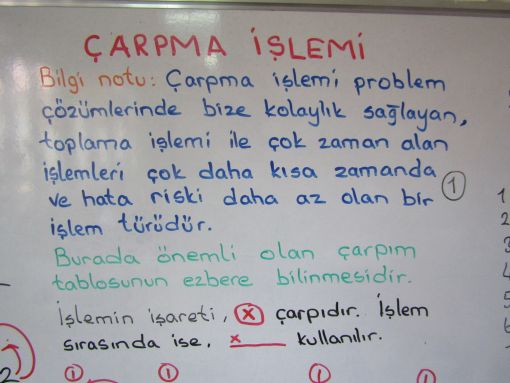 ÇARPMA İŞLEMİ
Bilgi notu: Çarpma işlemi problem
çözümlerinde bize kolaylık sağlayan,
toplama işlemi ile çok zaman alan
işlemleri çok daha kısa zamanda
ve hata riski daha az olan bir ①
işlem türüdür.
Burada önemli olan çarpım
tablosunun ezbere bilinmesidir.
İşlemin işareti, ⓧ çarpıdır. İşlem
sırasında ise, x____ kullanılır.
① ① ① ①
2
1
2
3
4
5
6